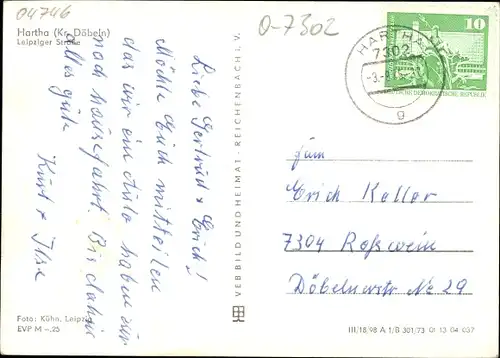 04746
O-7302
Hartha (Kr. Döbeln)
Leipziger Straße
HARTHA
7302
-3.-
g
10
DEUTSCHE DEMOKRATISCHE REPUBLIK
Liebe Gertrud & Erich!
Möchte Euch mitteilen
das wir ein Auto haben zur
nach hausefahrt. Bis dahin
alles gute
Kurt & Ilse
VEB BILD UND HEIMAT · REICHENBACH i. V.
Fam
Erich Keller
7304 Roßwein
Döbelnerstr No 29
Foto: Kühn, Leipzig
EVP M –,25
III/18/98 A 1/B 301/73 01 13 04 037